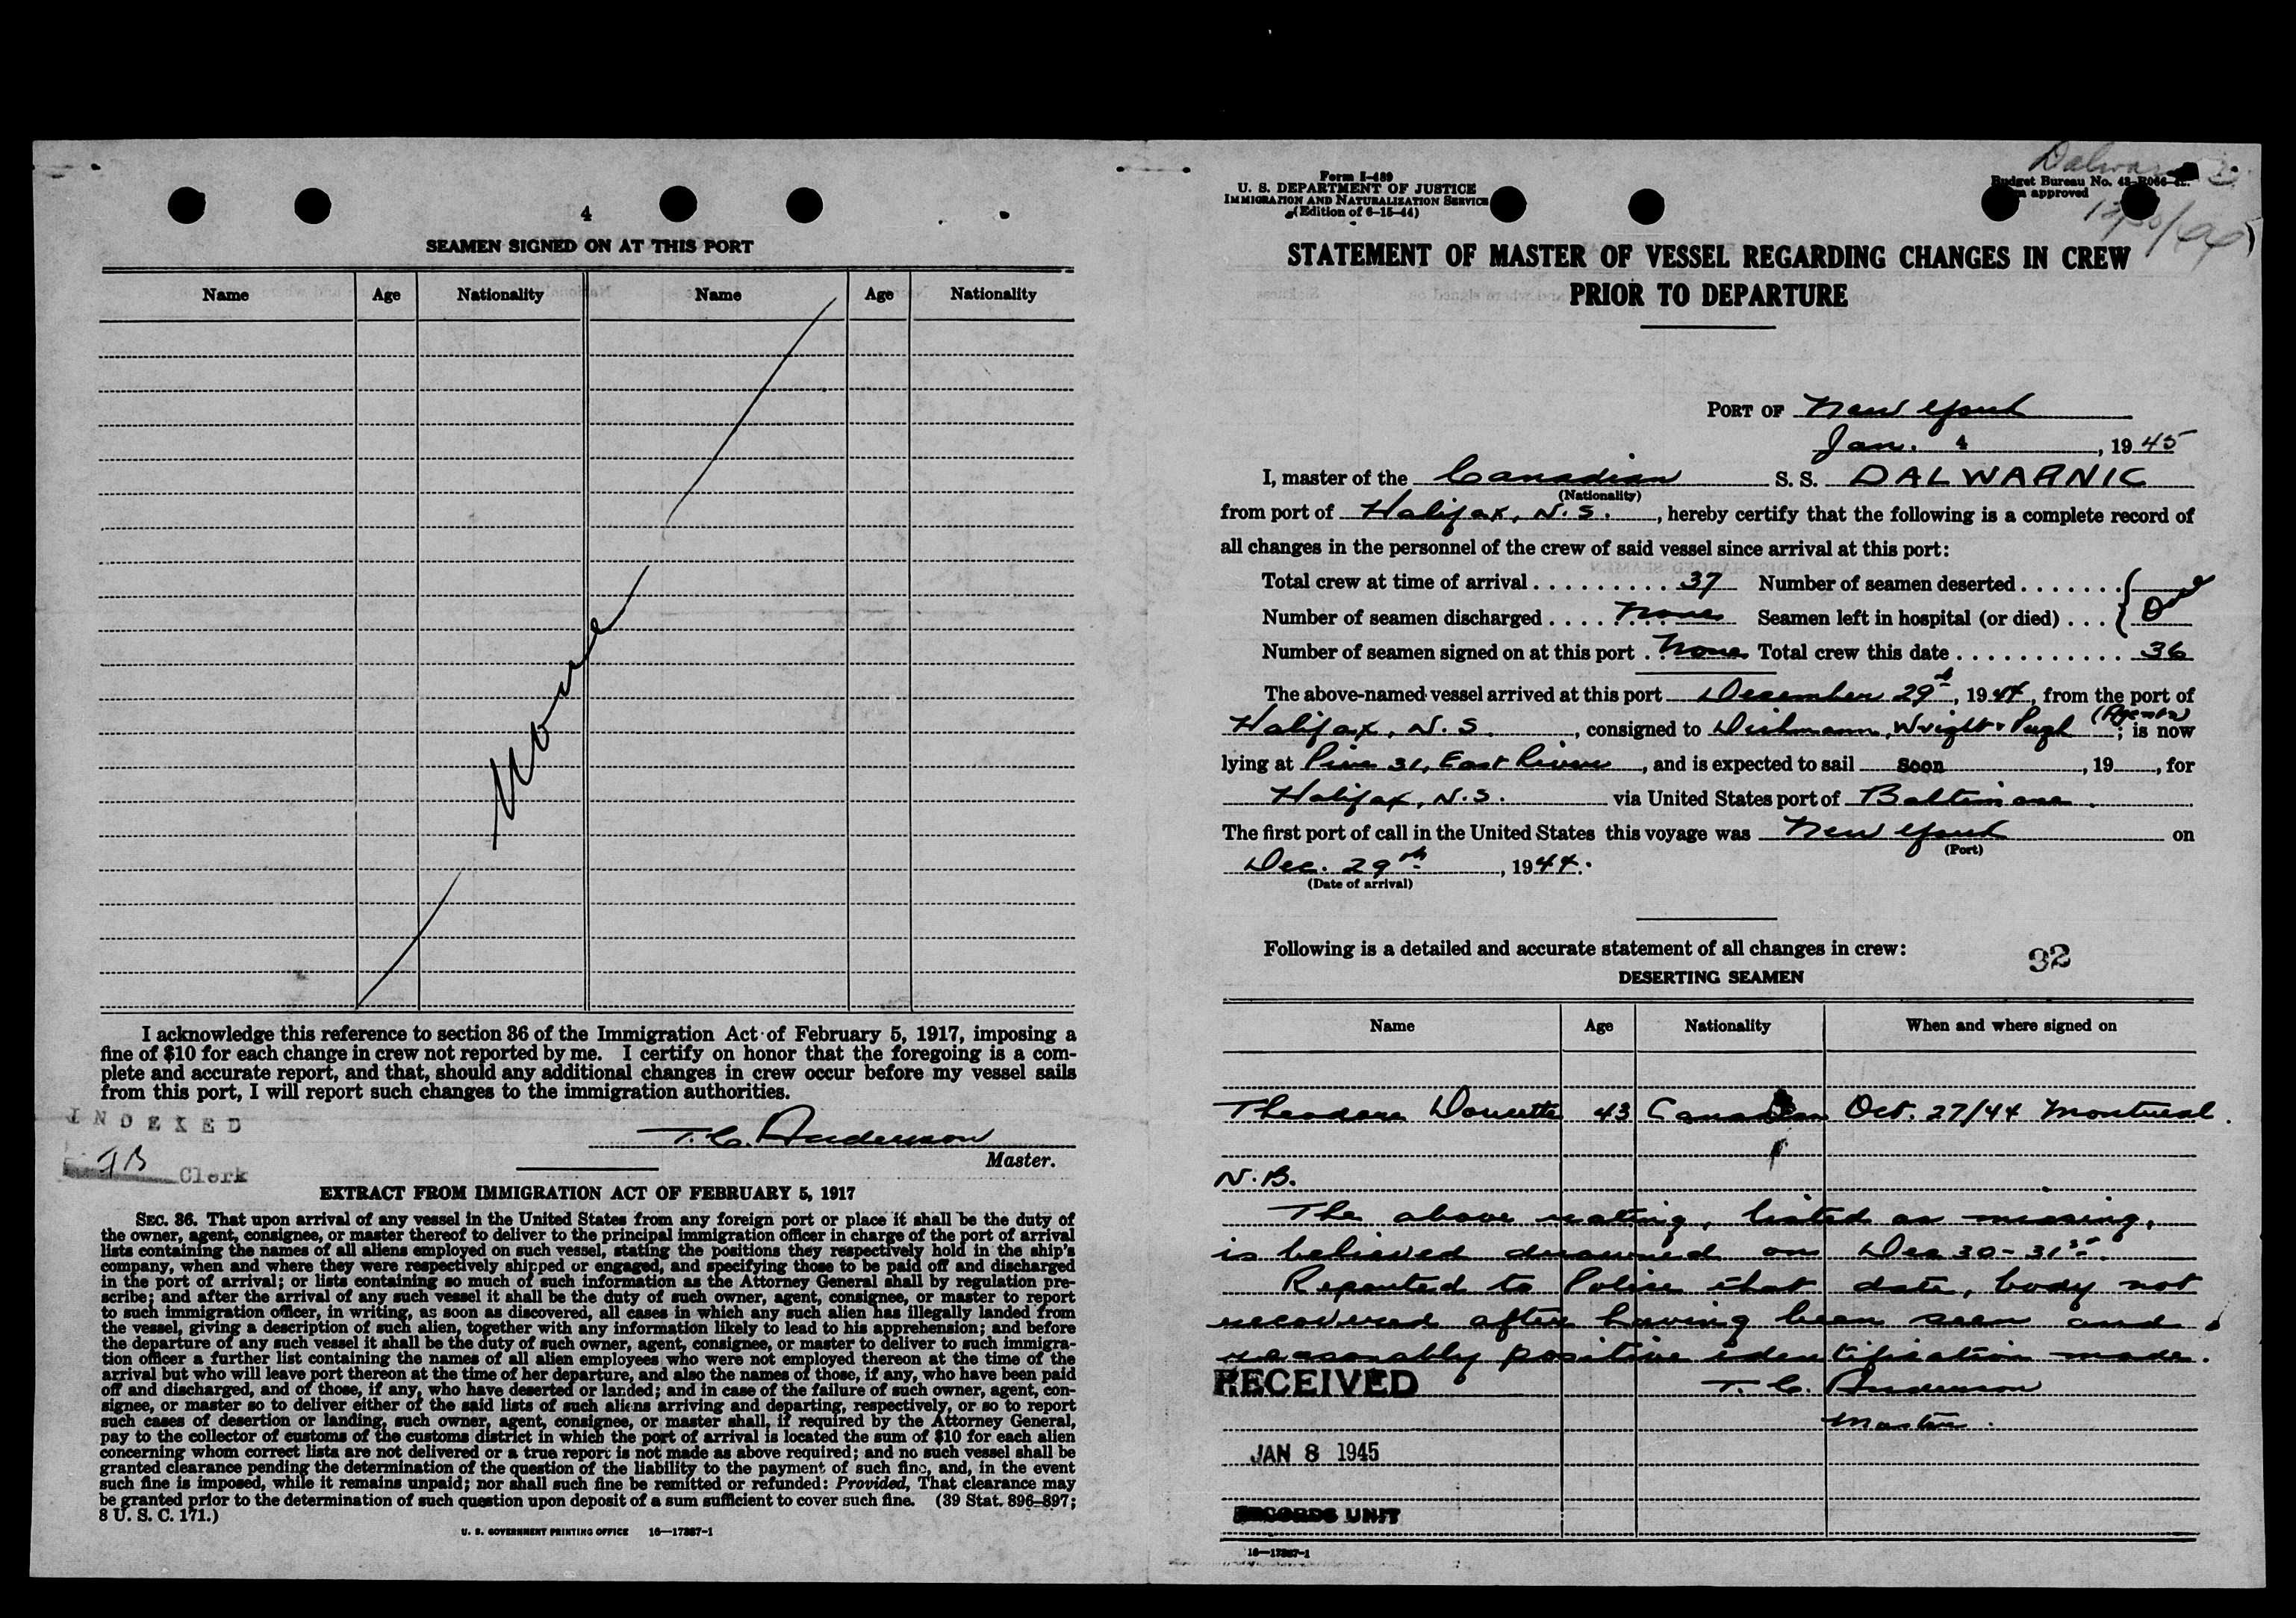 4
SEAMEN SIGNED ON AT THIS PORT
Name Age Nationality Name Age Nationality
None
I acknowledge this reference to section 36 of the Immigration Act of February 5, 1917, imposing a
fine of $10 for each change in crew not reported by me. I certify on honor that the foregoing is a com-
plete and accurate report, and that, should any additional changes in crew occur before my vessel sails
from this port, I will report such changes to the immigration authorities.
INDEXED
T. C. Anderson
Master.
JB Clerk
EXTRACT FROM IMMIGRATION ACT OF FEBRUARY 5, 1917
SEC. 36. That upon arrival of any vessel in the United States from any foreign port or place it shall be the duty of
the owner, agent, consignee, or master thereof to deliver to the principal immigration officer in charge of the port of arrival
lists containing the names of all aliens employed on such vessel, stating the positions they respectively hold in the ship's
company, when and where they were respectively shipped or engaged, and specifying those to be paid off and discharged
in the port of arrival; or lists containing so much of such information as the Attorney General shall by regulation pre-
scribe; and after the arrival of any such vessel it shall be the duty of such owner, agent, consignee, or master to report
to such immigration officer, in writing, as soon as discovered, all cases in which any such alien has illegally landed from
the vessel, giving a description of such alien, together with any information likely to lead to his apprehension; and before
the departure of any such vessel it shall be the duty of such owner, agent, consignee, or master to deliver to such immigra-
tion officer a further list containing the names of all alien employees who were not employed thereon at the time of the
arrival but who will leave port thereon at the time of her departure, and also the names of those, if any, who have been paid
off and discharged, and of those, if any, who have deserted or landed; and in case of the failure of such owner, agent, con-
signee, or master so to deliver either of the said lists of such aliens arriving and departing, respectively, or so to report
such cases of desertion or landing, such owner, agent, consignee, or master shall, if required by the Attorney General,
pay to the collector of customs of the customs district in which the port of arrival is located the sum of $10 for each alien
concerning whom correct lists are not delivered or a true report is not made as above required; and no such vessel shall be
granted clearance pending the determination of the question of the liability to the payment of such fine, and, in the event
such fine is imposed, while it remains unpaid; nor shall such fine be remitted or refunded: Provided, That clearance may
be granted prior to the determination of such question upon deposit of a sum sufficient to cover such fine. (39 Stat. 896-897;
8 U. S. C. 171.)
U. S. GOVERNMENT PRINTING OFFICE 16—17387-1
Form I-489
U. S. DEPARTMENT OF JUSTICE
IMMIGRATION AND NATURALIZATION SERVICE
(Edition of 6-15-44)
Budget Bureau No. 43-R066
approved
STATEMENT OF MASTER OF VESSEL REGARDING CHANGES IN CREW
PRIOR TO DEPARTURE
PORT OF New York
Jan. 4, 1945
I, master of the Canadian S. S. DALWARNIC
(Nationality)
from port of Halifax, N.S., hereby certify that the following is a complete record of
all changes in the personnel of the crew of said vessel since arrival at this port:
Total crew at time of arrival 37 Number of seamen deserted
Number of seamen discharged None Seamen left in hospital (or died)
Number of seamen signed on at this port None Total crew this date 36
The above-named vessel arrived at this port December 29th, 1944, from the port of
Halifax, N.S., consigned to Dichmann, Wright & Pugh (Agents); is now
lying at Pier 31, East River, and is expected to sail soon, 19, for
Halifax, N.S. via United States port of Baltimore.
The first port of call in the United States this voyage was New York on
(Port)
Dec. 29th, 1944.
(Date of arrival)
Following is a detailed and accurate statement of all changes in crew:
92
DESERTING SEAMEN
Name Age Nationality When and where signed on
Theodore Doucette 43 Canadian Oct. 27/44 Montreal.
N.B.
The above rating, listed as missing,
is believed drowned on Dec 30-31st.
Reported to Police that date, body not
recovered after having been seen and
reasonably positive identification made.
RECEIVED
T. C. Anderson
Master.
JAN 8 1945
RECORDS UNIT
16—17387-1